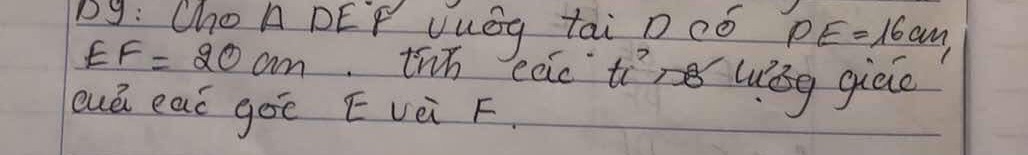 B9: Cho Δ DEF vuông tại D có DE=16cm,
EF = 20 cm. tính các tỉ số lượng giác
của các góc E và F.